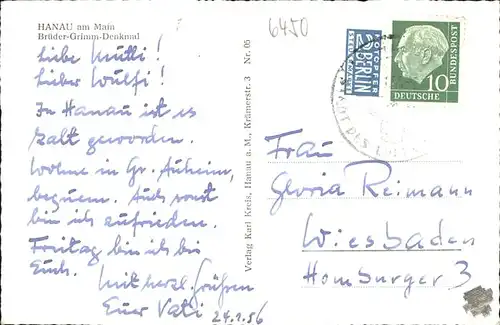 HANAU am Main
Brüder-Grimm-Denkmal
6450
Liebe Mutti!
Lieber Wulfi!
In Hanau ist es
kalt geworden.
Wohne in Gr. Auheim,
bequem. Auch sonst
bin ich zufrieden.
Freitag bin ich bei
Euch.
Mit herzl. Grüßen
Euer Vati
24.1.56
Verlag Karl Kreis, Hanau a. M., Krämerstr. 3 Nr. 05
NOTOPFER
2 BERLIN
STEUERMARKE
10
DEUTSCHE
BUNDESPOST
STADT DES
Frau
Gloria Reimann
Wiesbaden
Homburger 3